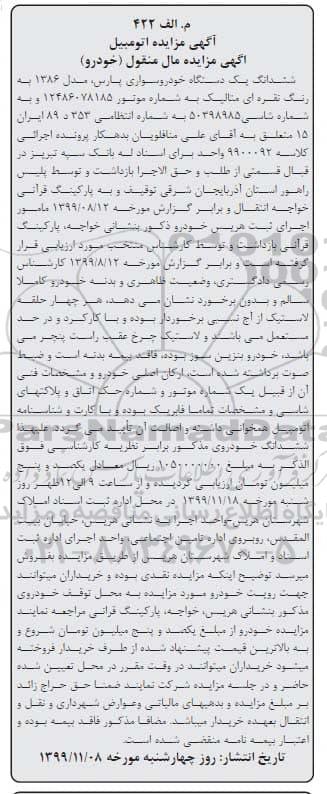 م. الف ۴۲۲
آگهی مزایده اتومبیل
اگهی مزایده مال منقول (خودرو)
ششدانگ یک دستگاه خودروسواری پارس، مدل ۱۳۸۶ به
رنگ نقره ای متالیک به شماره موتور ۱۲۴۸۶۰۷۸۱۸۵ و به
شماره شاسی ۵۰۳۹۸۹۸۵ به شماره انتظامی ۳۵۳ د ۸۹ ایران
۱۵ متعلق به آقای علی منافلویان بدهکار پرونده اجرائی
کلاسه ۹۹۰۰۰۹۲ واحد برای اسناد له بانک سپه تبریز در
قبال قسمتی از طلب و حق الاجرا بازداشت و توسط پلیس
راهور استان آذربایجان شرقی توقیف و به پارکینگ قرآنی
خواجه انتقال و برابر گزارش مورخه ۱۳۹۹/۰۸/۱۲ مامور
اجرای ثبت هریس خودرو ذکور بنشانی خواجه، پارکینگ
قرآنی بازداشت و توسط کارشناس منتخب مورد ارزیابی قرار
گرفته است و برابر گزارش مورخه ۱۳۹۹/۸/۱۲ کارشناس
رسمی دادگستری، وضعیت ظاهری و بدنه خودرو کاملا
سالم و بدون برخورد نشان می دهد، هر چهار حلقه
لاستیک از آج نسبی برخوردار بوده و با کارکرد و در حد
مستعمل می باشند و لاستیک چرخ عقب راست پنچر می
باشد، خودرو بنزین سوز بوده، فاقد بیمه بدنه است و ضبط
صوت برداشته شده است، ارکان اصلی خودرو و مشخصات فنی
آن از قبیل پک شماره موتور و شماره حک اتاق و پلاکتهای
شاسی و مشخصات تماما فابریک بوده و با کارت و شناسنامه
اتومبیل همخوانی داشته و اصالت آن تأیید می گردد، علیهذا
ششدانگ خودروی مذکور برابر نظریه کارشناسی فوق
الذکر به مبلغ ۱۰۵۰۰۰۰۰۶۰ ریال معادل یکصد و پنج
میلیون تومان ارزیابی گردیده و از ساعت ۹ الی ۱۲ظهر روز
شنبه مورخه ۱۳۹۹/۱۱/۱۸ در محل اداره ثبت اسناد املاک
شهرستان هریس واحد اجرا به نشانی هریس، خیابان بیت
المقدس، روبروی اداره تامین اجتماعی، واحد اجرای اداره ثبت
اسناد و املاک شهرستان هریس از طریق مزایده بفروش
میرسد توضیح اینکه مزایده نقدی بوده و خریداران میتوانند
جهت رویت خودرو مورد مزایده به محل توقف خودروی
مذکور بنشانی هریس، خواجه، پارکینگ قرانی مراجعه نمایند
مزایده خودرو از مبلغ یکصد و پنج میلیون تومان شروع و
به بالاترین قیمت پیشنهاد شده از طرف خریدار فروخته
میشود خریداران میتوانند در وقت مقرر در محل تعیین شده
حاضر و در جلسه مزایده شرکت نمایند ضمنا حق حراج زائد
بر مبلغ مزایده و بدهیهای مالیاتی وعوارض شهرداری و نقل و
انتقال بعهده خریدار میباشد. مضافا مذکور فاقد بیمه بوده و
اعتبار بیمه نامه منقضی شده است.
تاریخ انتشار: روز چهارشنبه مورخه ۱۳۹۹/۱۱/۰۸